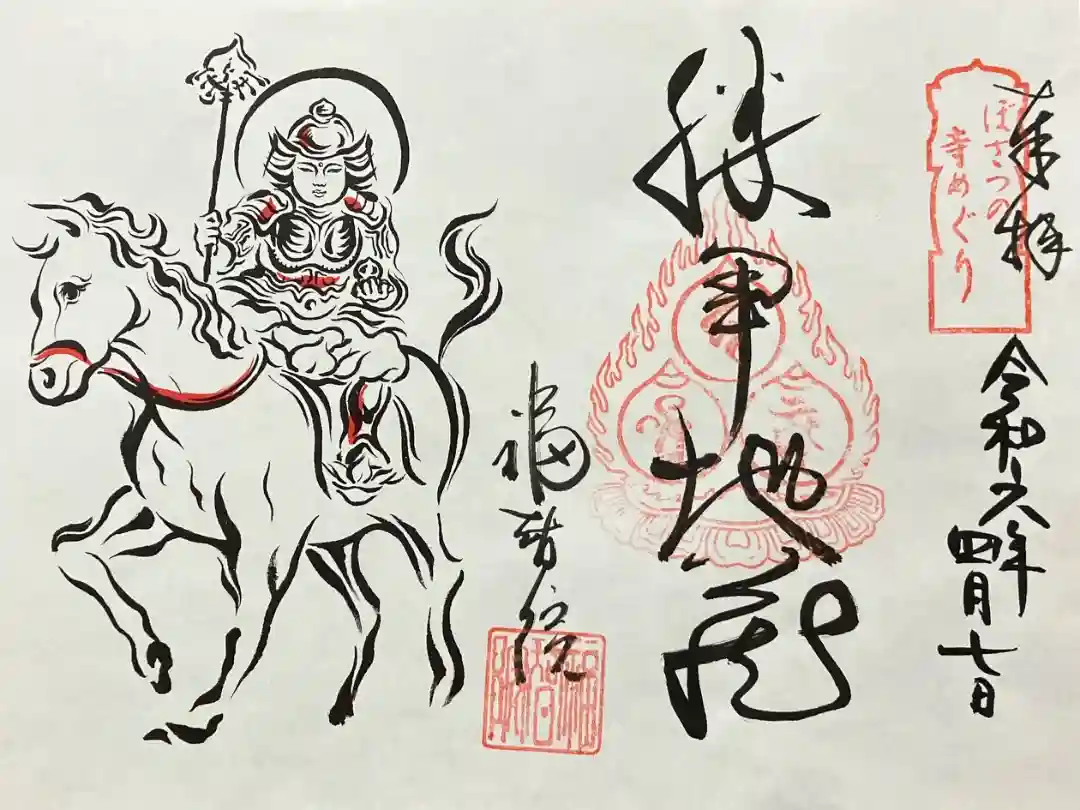 奉拝
ぼさつの
寺めぐり
令和六年
四月七日
勝軍地蔵
福智院
福智院